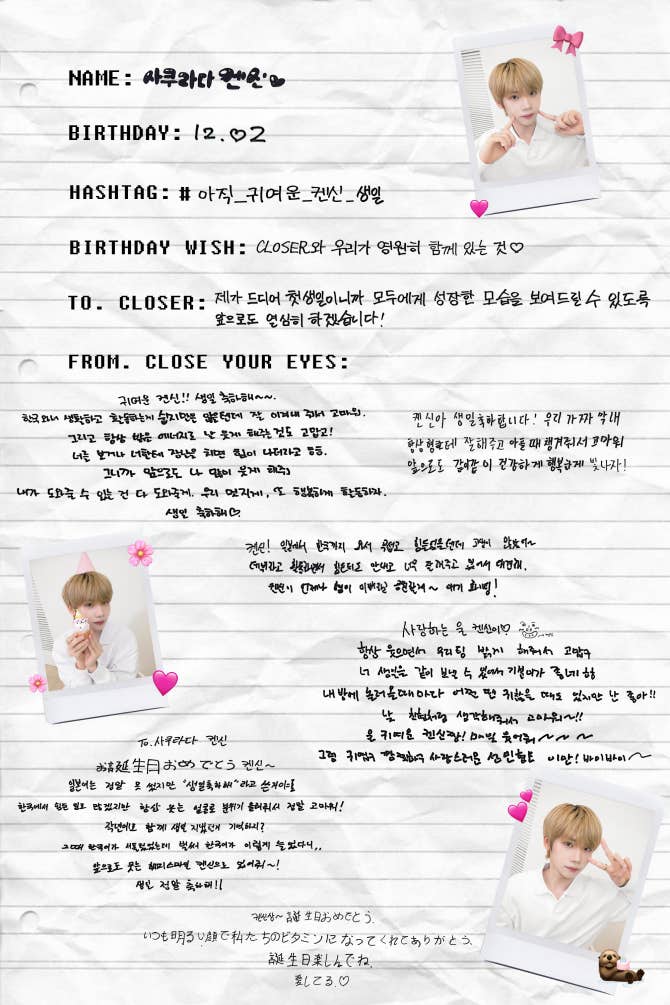 NAME: 사쿠라다 켄신
BIRTHDAY: 12.♡2
HASHTAG: # 아직_귀여운_켄신_생일
BIRTHDAY WISH: CLOSER와 우리가 영원히 함께 있는 것♡
TO. CLOSER: 제가 드디어 첫생일이니까 모두에게 성장한 모습을 보여드릴 수 있도록
앞으로도 열심히 하겠습니다!
FROM. CLOSE YOUR EYES:
귀여운 켄신!! 생일 축하해~~.
한국와서 생활하고 활동하는게 쉽지만은 않을텐데 잘 이겨내 줘서 고마워.
그리고 항상 밝은 에너지로 날 웃게 해주는것도 고맙고!
너를 보거나 너한테 장난을 치면 힘이 나더라고 ㅎㅎ.
그니까 앞으로도 나 많이 웃게 해줘
내가 도와줄 수 있는 건 다 도와줄게. 우리 멋지게, 또 행복하게 활동하자.
생일 축하해♡
켄신아 생일축하합니다! 우리 가짜 막내
항상 형한테 잘해주고 아플때 챙겨줘서 고마워
앞으로도 같이 건강하게 행복하게 빛나자!
켄신! 일본에서 한국까지 와서 무섭고 힘들었을텐데
사랑하는 울 켄신이♡
항상 웃으면서 우리팀 밝게 해줘서 고맙구
너 생일을 같이 보낼 수 있어서 기분이가 좋네 힝
내 방에 놀러올때마다 어쩔 땐 귀찮을 때도 있지만 난 좋아!!
날 친형처럼 생각해줘서 고마워~!!
울 귀여운 켄신쨩! 매일 웃어줘~ ~ ~
그럼 귀엽구 깜찍하구 사랑스러운 이만! 바이바이~
To. 사쿠라다 켄신
お誕生日おめでとう 켄신~
일본어는 정말 못 썼지만 "생일축하해"라고 쓴거야
한국에서 힘든 일도 많겠지만 항상 웃는 얼굴로 분위기 올려줘서 정말 고마워!
작년에도 함께 생일 지냈던거 기억하지?
그때 한국어가 서툴렀었는데 벌써 한국어가 이렇게 늘었다니,,
앞으로도 웃는 해피스마일 켄신으로 있어줘~!
생일 정말 축하해!!
켄신상~ 誕生日おめでとう.
いつも明るい顔で私たちのビタミンになってくれてありがとう.
誕生日楽しんでね.
愛してる.♡